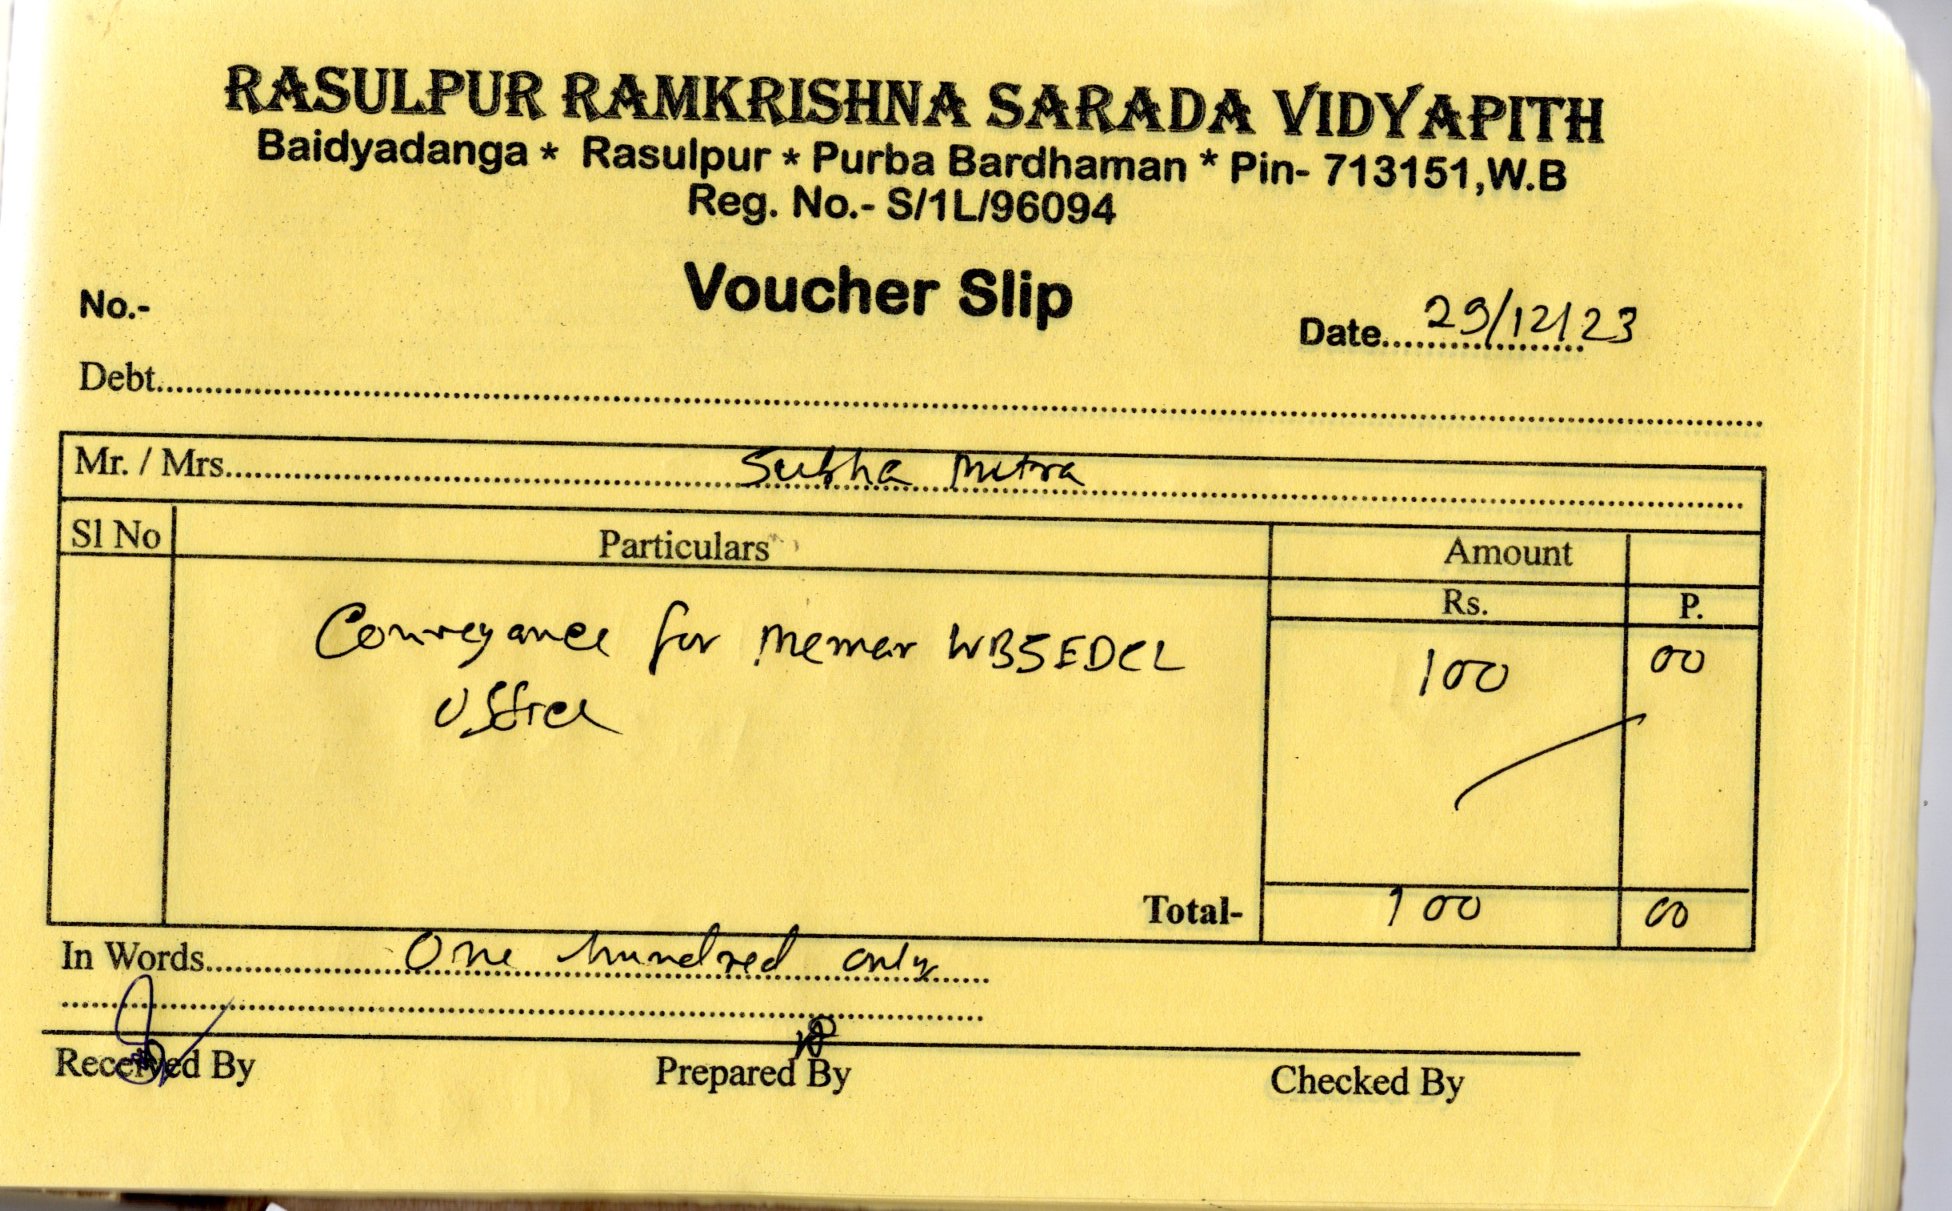 RASULPUR RAMKRISHNA SARADA VIDYAPITH
Baidyadanga * Rasulpur * Purba Bardhaman * Pin- 713151,W.B
Reg. No.- S/1L/96094
Voucher Slip
No.-
Date 29/12/23
Debt
Mr. / Mrs. Subha Mitra
Sl No Particulars Amount
Rs. P.
Conveyance for Memari WBSEDCL 100 00
Office
Total- 100 00
In Words One hundred only
Received By Prepared By Checked By